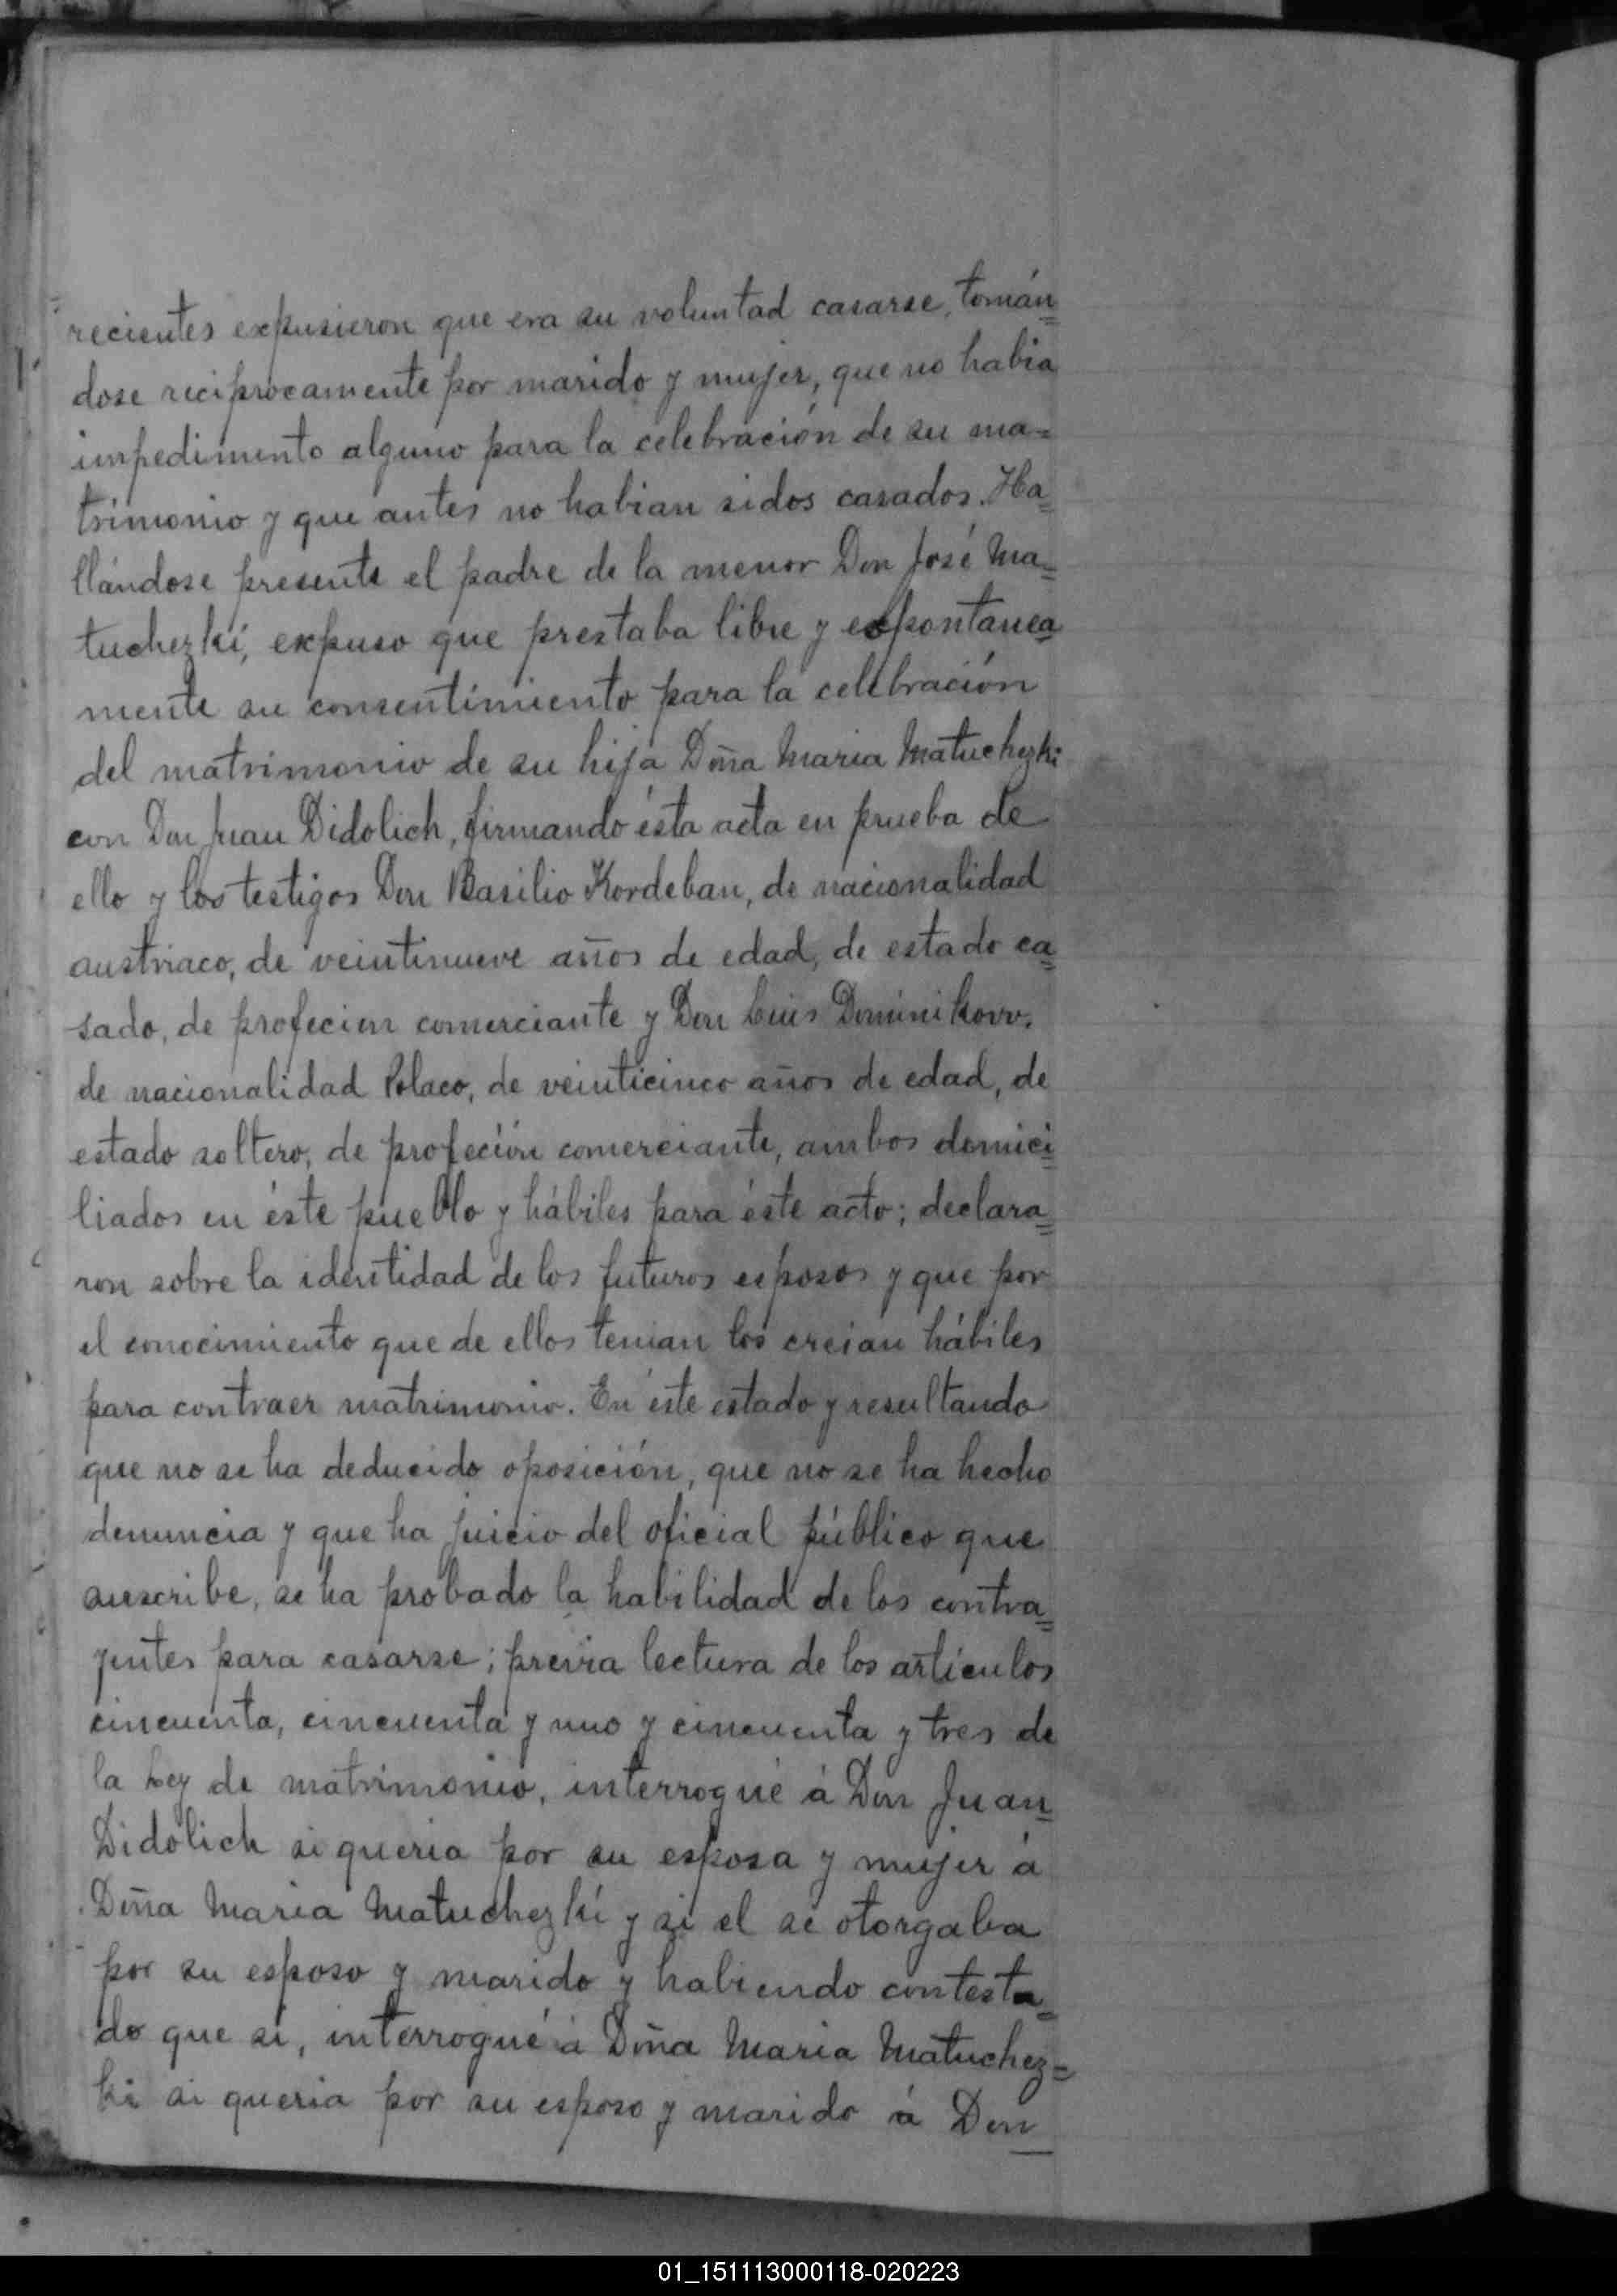 recientes expusieron que era su voluntad casarse, tomán=
dose reciprocamente por marido y mujer, que no habia
impedimento alguno para la celebración de su ma=
trimonio y que antes no habian sidos casados. Ha=
llándose presente el padre de la menor Don José Ma=
tuchezki, expuso que prestaba libre y espontanea
mente su consentimiento para la celebración
del matrimonio de su hija Doña Maria Matuchezki
con Don Juan Didolich, firmando ésta acta en prueba de
ello y los testigos Don Basilio Kordeban, de nacionalidad
austriaco, de veintinueve años de edad, de estado ca=
sado, de profecion comerciante y Don Luis Dominikow,
de nacionalidad Polaco, de veinticinco años de edad, de
estado soltero, de profeción comerciante, ambos domici=
liados en éste pueblo y hábiles para éste acto; declara=
ron sobre la identidad de los futuros esposos y que por
el conocimiento que de ellos tenian los creian hábiles
para contraer matrimonio. En éste estado y resultando
que no se ha deducido oposición, que no se ha hecho
denuncia y que ha juicio del oficial público que
suscribe, se ha probado la habilidad de los contra=
yentes para casarse; previa lectura de los artículos
cincuenta, cincuenta y uno y cincuenta y tres de
la Ley de matrimonio, interrogué á Don Juan
Didolich si queria por su esposa y mujer á
Doña Maria Matuchezkí y si el se otorgaba
por su esposo y marido y habiendo contesta=
do que si, interrogué á Doña Maria Matuchez=
ki si queria por su esposo y marido á Don
01_151113000118-020223